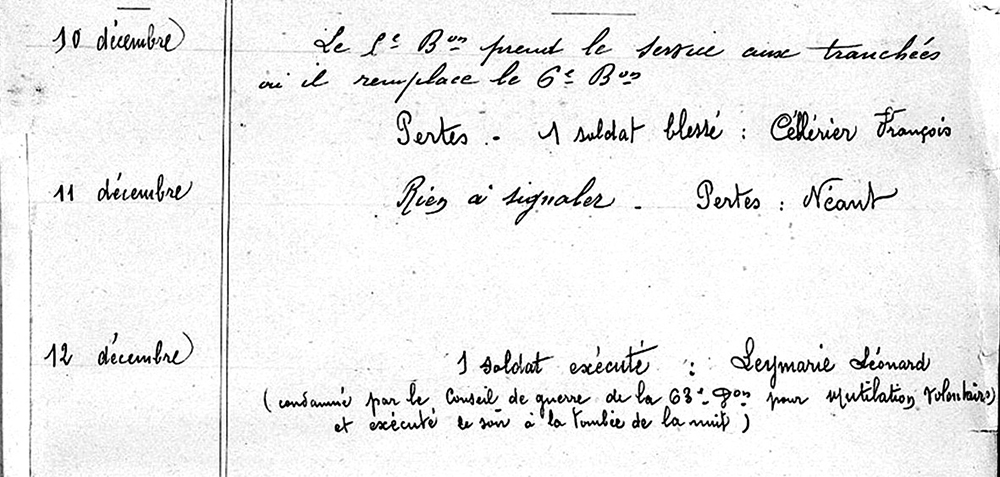 10 décembre
Le 5e Bon prend le service aux tranchées
où il remplace le 6e Bon
Pertes. - 1 soldat blessé : Céllérier François
11 décembre
Rien à signaler - Pertes : Néant
12 décembre
1 soldat exécuté : Leymarie Léonard
(condamné par le Conseil de guerre de la 63e Don pour mutilation volontaire)
et exécuté le soir à la tombée de la nuit)